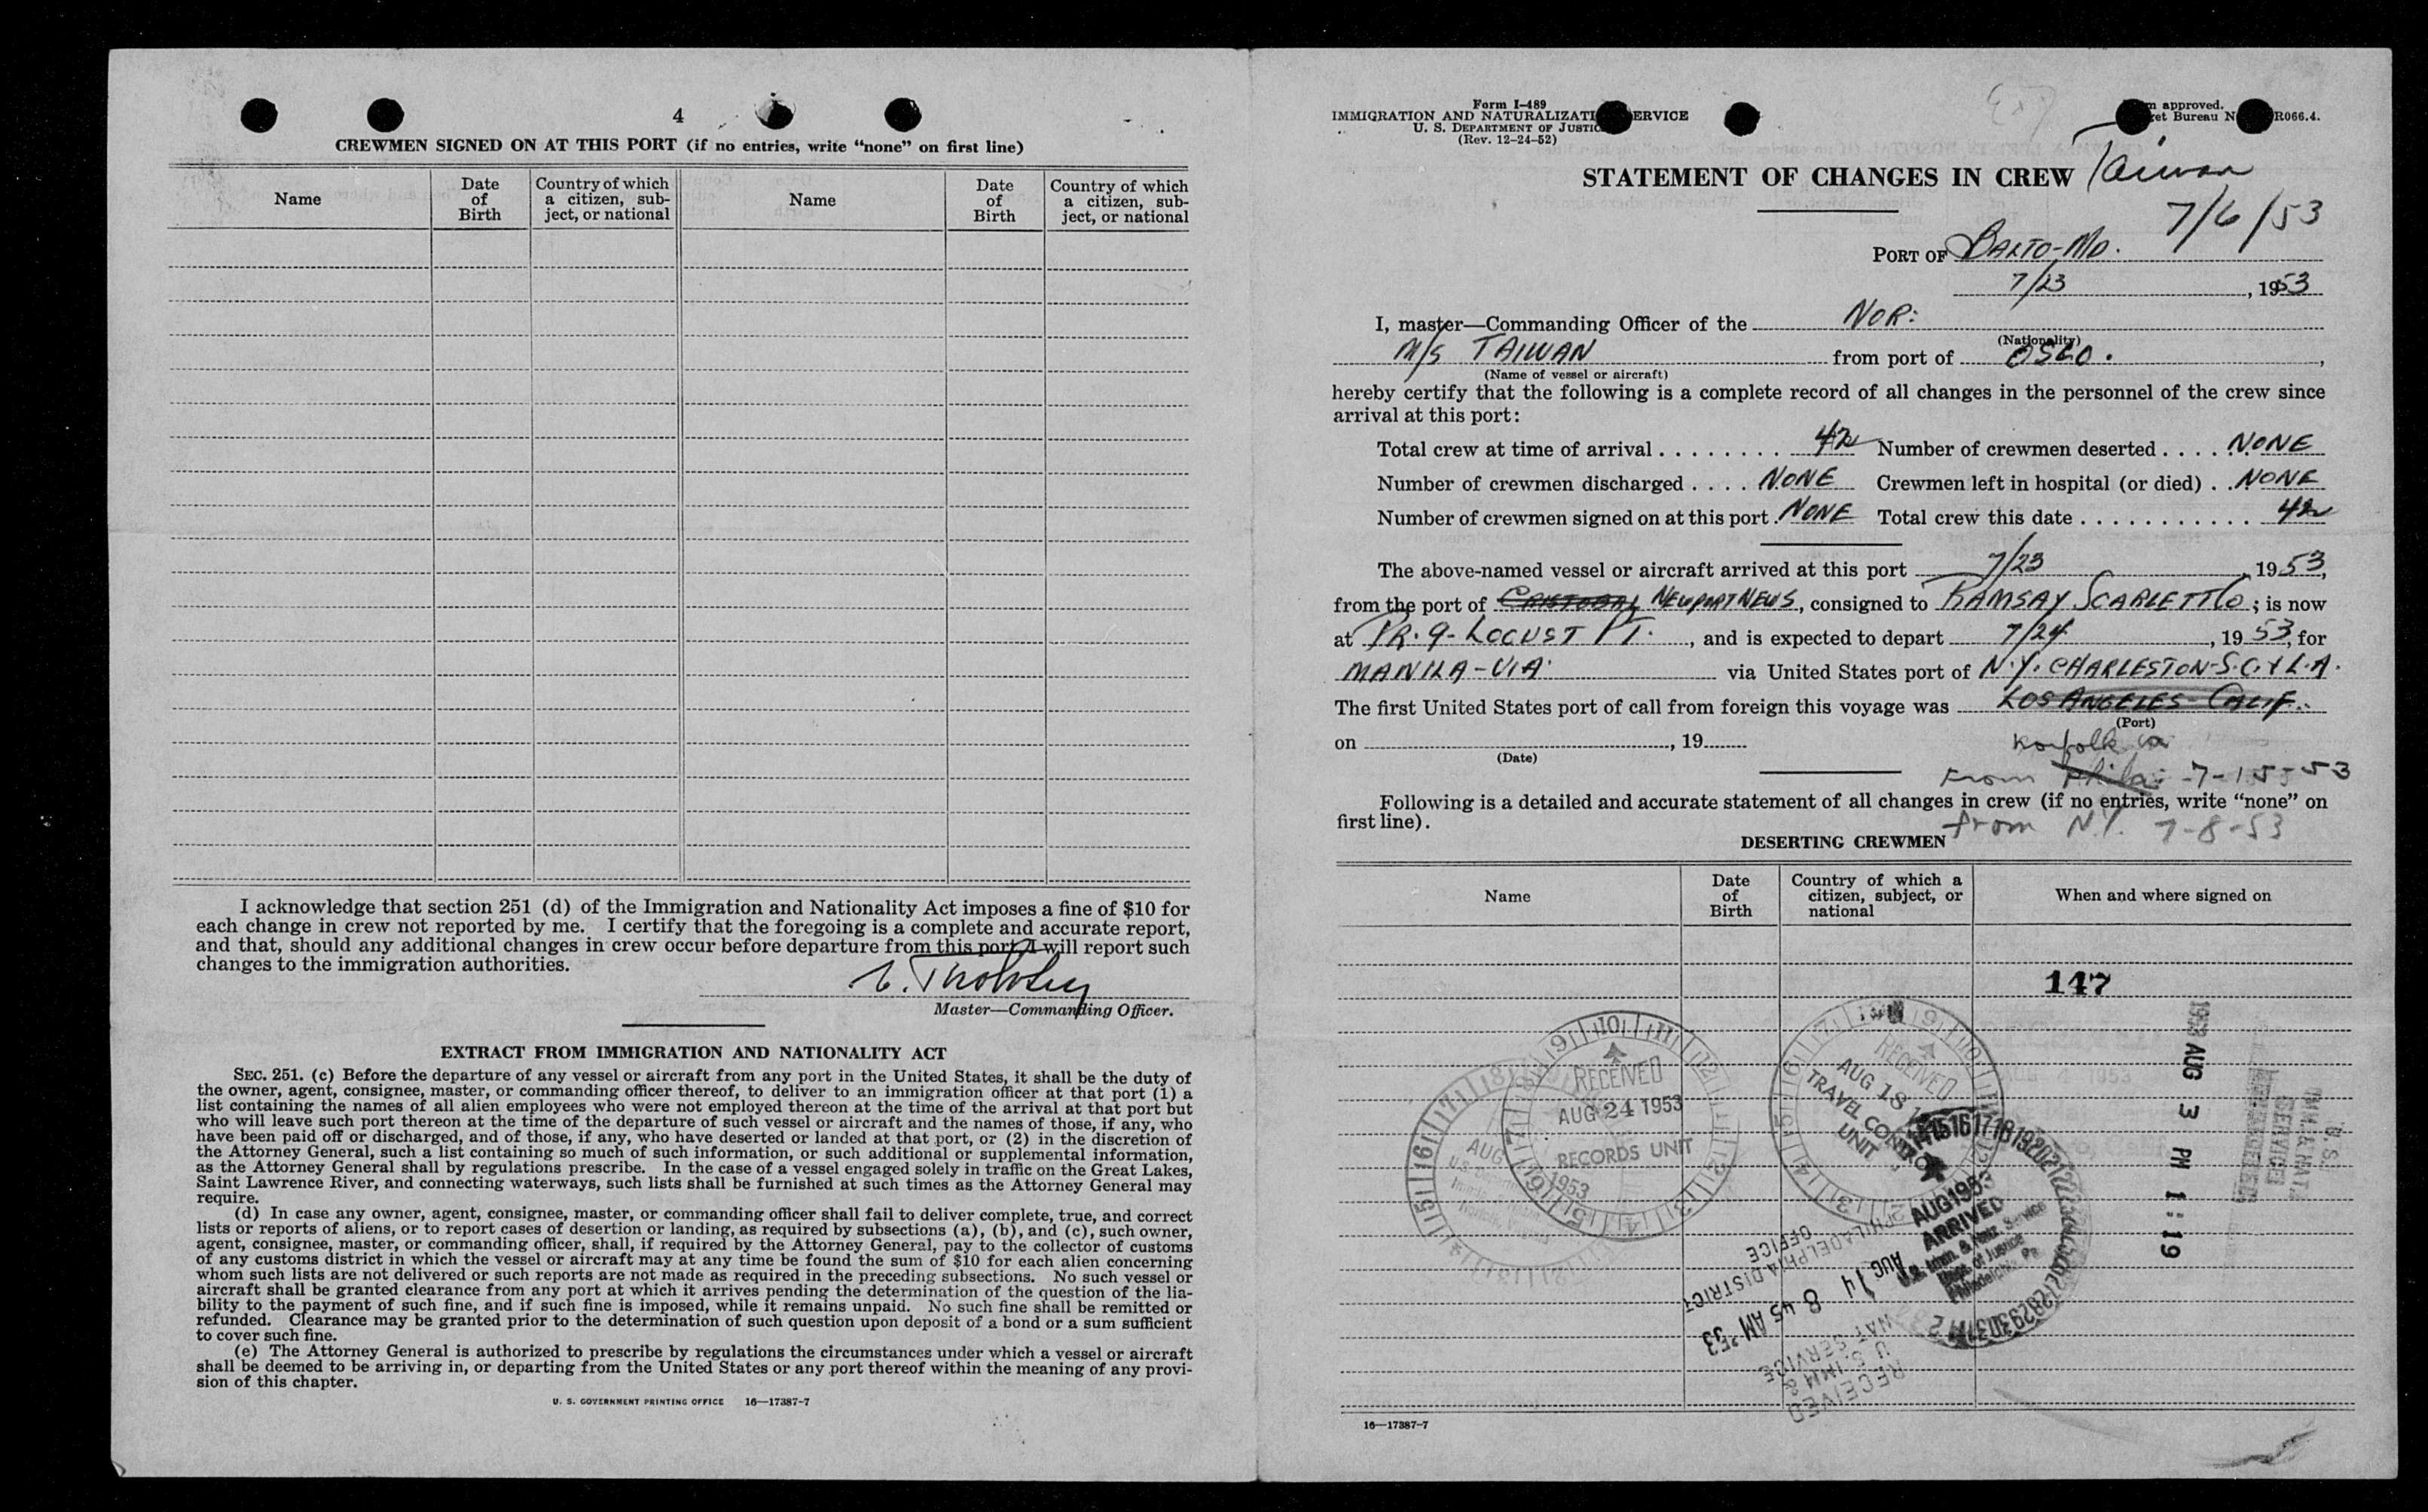 4
CREWMEN SIGNED ON AT THIS PORT (if no entries, write “none” on first line)
Name
Date of Birth
Country of which a citizen, subject, or national
Name
Date of Birth
Country of which a citizen, subject, or national
I acknowledge that section 251 (d) of the Immigration and Nationality Act imposes a fine of $10 for
each change in crew not reported by me. I certify that the foregoing is a complete and accurate report,
and that, should any additional changes in crew occur before departure from this port I will report such
changes to the immigration authorities.
Master—Commanding Officer.
EXTRACT FROM IMMIGRATION AND NATIONALITY ACT
SEC. 251. (c) Before the departure of any vessel or aircraft from any port in the United States, it shall be the duty of
the owner, agent, consignee, master, or commanding officer thereof, to deliver to an immigration officer at that port (1) a
list containing the names of all alien employees who were not employed thereon at the time of the arrival at that port but
who will leave such port thereon at the time of the departure of such vessel or aircraft and the names of those, if any, who
have been paid off or discharged, and of those, if any, who have deserted or landed at that port, or (2) in the discretion of
the Attorney General, such a list containing so much of such information, or such additional or supplemental information,
as the Attorney General shall by regulations prescribe. In the case of a vessel engaged solely in traffic on the Great Lakes,
Saint Lawrence River, and connecting waterways, such lists shall be furnished at such times as the Attorney General may
require.
(d) In case any owner, agent, consignee, master, or commanding officer shall fail to deliver complete, true, and correct
lists or reports of aliens, or to report cases of desertion or landing, as required by subsections (a), (b), and (c), such owner,
agent, consignee, master, or commanding officer, shall, if required by the Attorney General, pay to the collector of customs
of any customs district in which the vessel or aircraft may at any time be found the sum of $10 for each alien concerning
whom such lists are not delivered or such reports are not made as required in the preceding subsections. No such vessel or
aircraft shall be granted clearance from any port at which it arrives pending the determination of the question of the lia-
bility to the payment of such fine, and if such fine is imposed, while it remains unpaid. No such fine shall be remitted or
refunded. Clearance may be granted prior to the determination of such question upon deposit of a bond or a sum sufficient
to cover such fine.
(e) The Attorney General is authorized to prescribe by regulations the circumstances under which a vessel or aircraft
shall be deemed to be arriving in, or departing from the United States or any port thereof within the meaning of any provi-
sion of this chapter.
U. S. GOVERNMENT PRINTING OFFICE 16—17387-7
Form I-489
IMMIGRATION AND NATURALIZATI ERVICE
U. S. DEPARTMENT OF JUSTIC
(Rev. 12-24-52)
approved.
et Bureau N R066.4.
STATEMENT OF CHANGES IN CREW Taiwan
7/6/53
PORT OF BALTO-MD.
7/23, 1953
I, master—Commanding Officer of the NOR:
(Nationality)
M/S TAIWAN from port of OSLO.,
(Name of vessel or aircraft)
hereby certify that the following is a complete record of all changes in the personnel of the crew since
arrival at this port:
Total crew at time of arrival ........ 42 Number of crewmen deserted .... NONE
Number of crewmen discharged .... NONE Crewmen left in hospital (or died) .. NONE
Number of crewmen signed on at this port . NONE Total crew this date ........... 42
The above-named vessel or aircraft arrived at this port 7/23, 1953,
from the port of CRISTOBAL NEWPORT NEWS, consigned to RAMSAY SCARLETT CO; is now
at PR. 9 - LOCUST PT., and is expected to depart 7/24, 1953, for
MANILA-VIA via United States port of N.Y. CHARLESTON-S.C. & L.A.
The first United States port of call from foreign this voyage was LOS ANGELES CALIF.
(Port)
on , 19
(Date)
Norfolk Va
From Phila - 7-15-53
Following is a detailed and accurate statement of all changes in crew (if no entries, write “none” on
first line).
from N.Y. 7-8-53
DESERTING CREWMEN
Name
Date of Birth
Country of which a citizen, subject, or national
When and where signed on
147
RECEIVED
AUG 24 1953
RECORDS UNIT
AUG 1953
RECEIVED
AUG 18
TRAVEL CONTROL
UNIT
AUG 1953
ARRIVED
U.S. Immn. & Natz. Service
Dept. of Justice
Philadelphia Pa
1953 AUG 3 PM 1:19
U.S.
IMM. & NAT.
SERVICE
RECEIVED
U.S. IMM &
NAT SERVICE
AUG 14 8 45 AM '53
PHILADELPHIA DISTRICT
OFFICE
16—17387-7